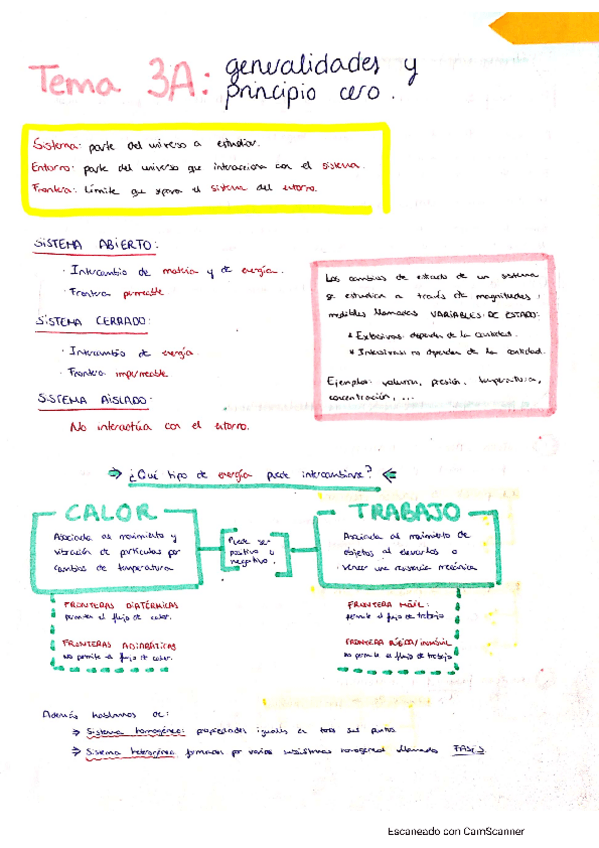 Tema 3A: generalidades y
principio cero.
Sistema: parte del universo a estudiar.
Entorno: parte del universo que interacciona con el sistema.
Frontera: Límite que separa el sistema del entorno.
SISTEMA ABIERTO:
· Intercambio de materia y de energía.
· Frontera permeable
SISTEMA CERRADO:
· Intercambio de energía.
· Frontera impermeable
SISTEMA AISLADO:
No interactúa con el entorno.
Los cambios de estado de un sistema
se estudian a través de magnitudes
medibles llamadas VARIABLES DE ESTADO:
* Extensivas: dependen de la cantidad.
* Intensivas: no dependen de la cantidad.
Ejemplos: volumen, presión, temperatura,
concentración, ...
¿Qué tipo de energía puede intercambiarse?
CALOR
Asociada al movimiento y
vibración de partículas por
cambios de temperatura
Puede ser
positivo o
negativo.
TRABAJO
Asociada al movimiento de
objetos al elevarlos o
vencer una resistencia mecánica
FRONTERAS DIATÉRMICAS
permiten el flujo de calor.
FRONTERAS ADIABÁTICAS
no permite el flujo de calor.
FRONTERA MÓVIL:
permite el flujo de trabajo
FRONTERA RÍGIDA/INMÓVIL
no permite el flujo de trabajo
Además hablamos de:
⇒ Sistema homogéneo: propiedades iguales en todos sus puntos
⇒ Sistema heterogéneo: formados por varios subsistemas homogéneos llamados FASES
Escaneado con CamScanner